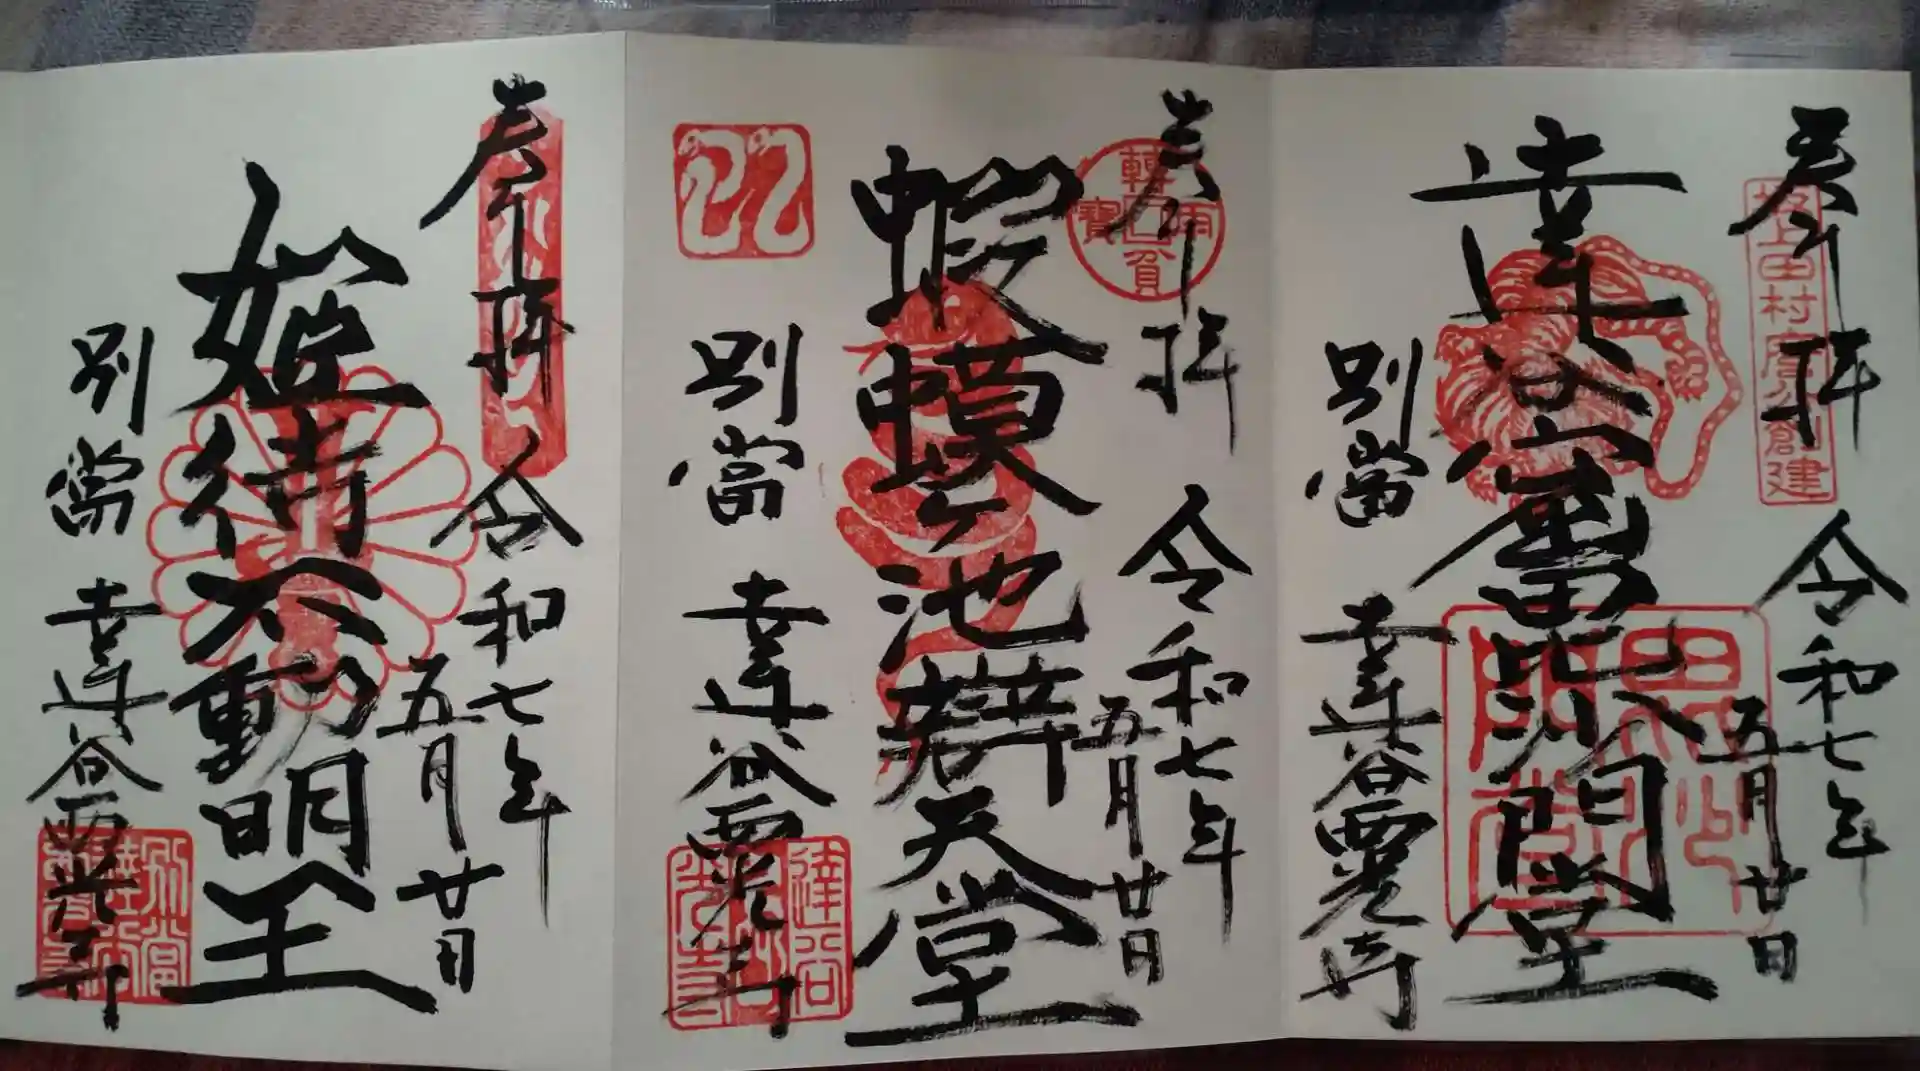 奉拝
坂上田村麿公創建
令和七年
五月廿日
達谷窟毘沙門堂
別當
達谷西光寺
奉拝
轉貧雨寶
令和七年
五月廿日
蝦蟆ヶ池辯天堂
別當
達谷西光寺
達谷西光寺
奉拝
令和七年
五月廿日
姫待不動明王
別當
達谷西光寺